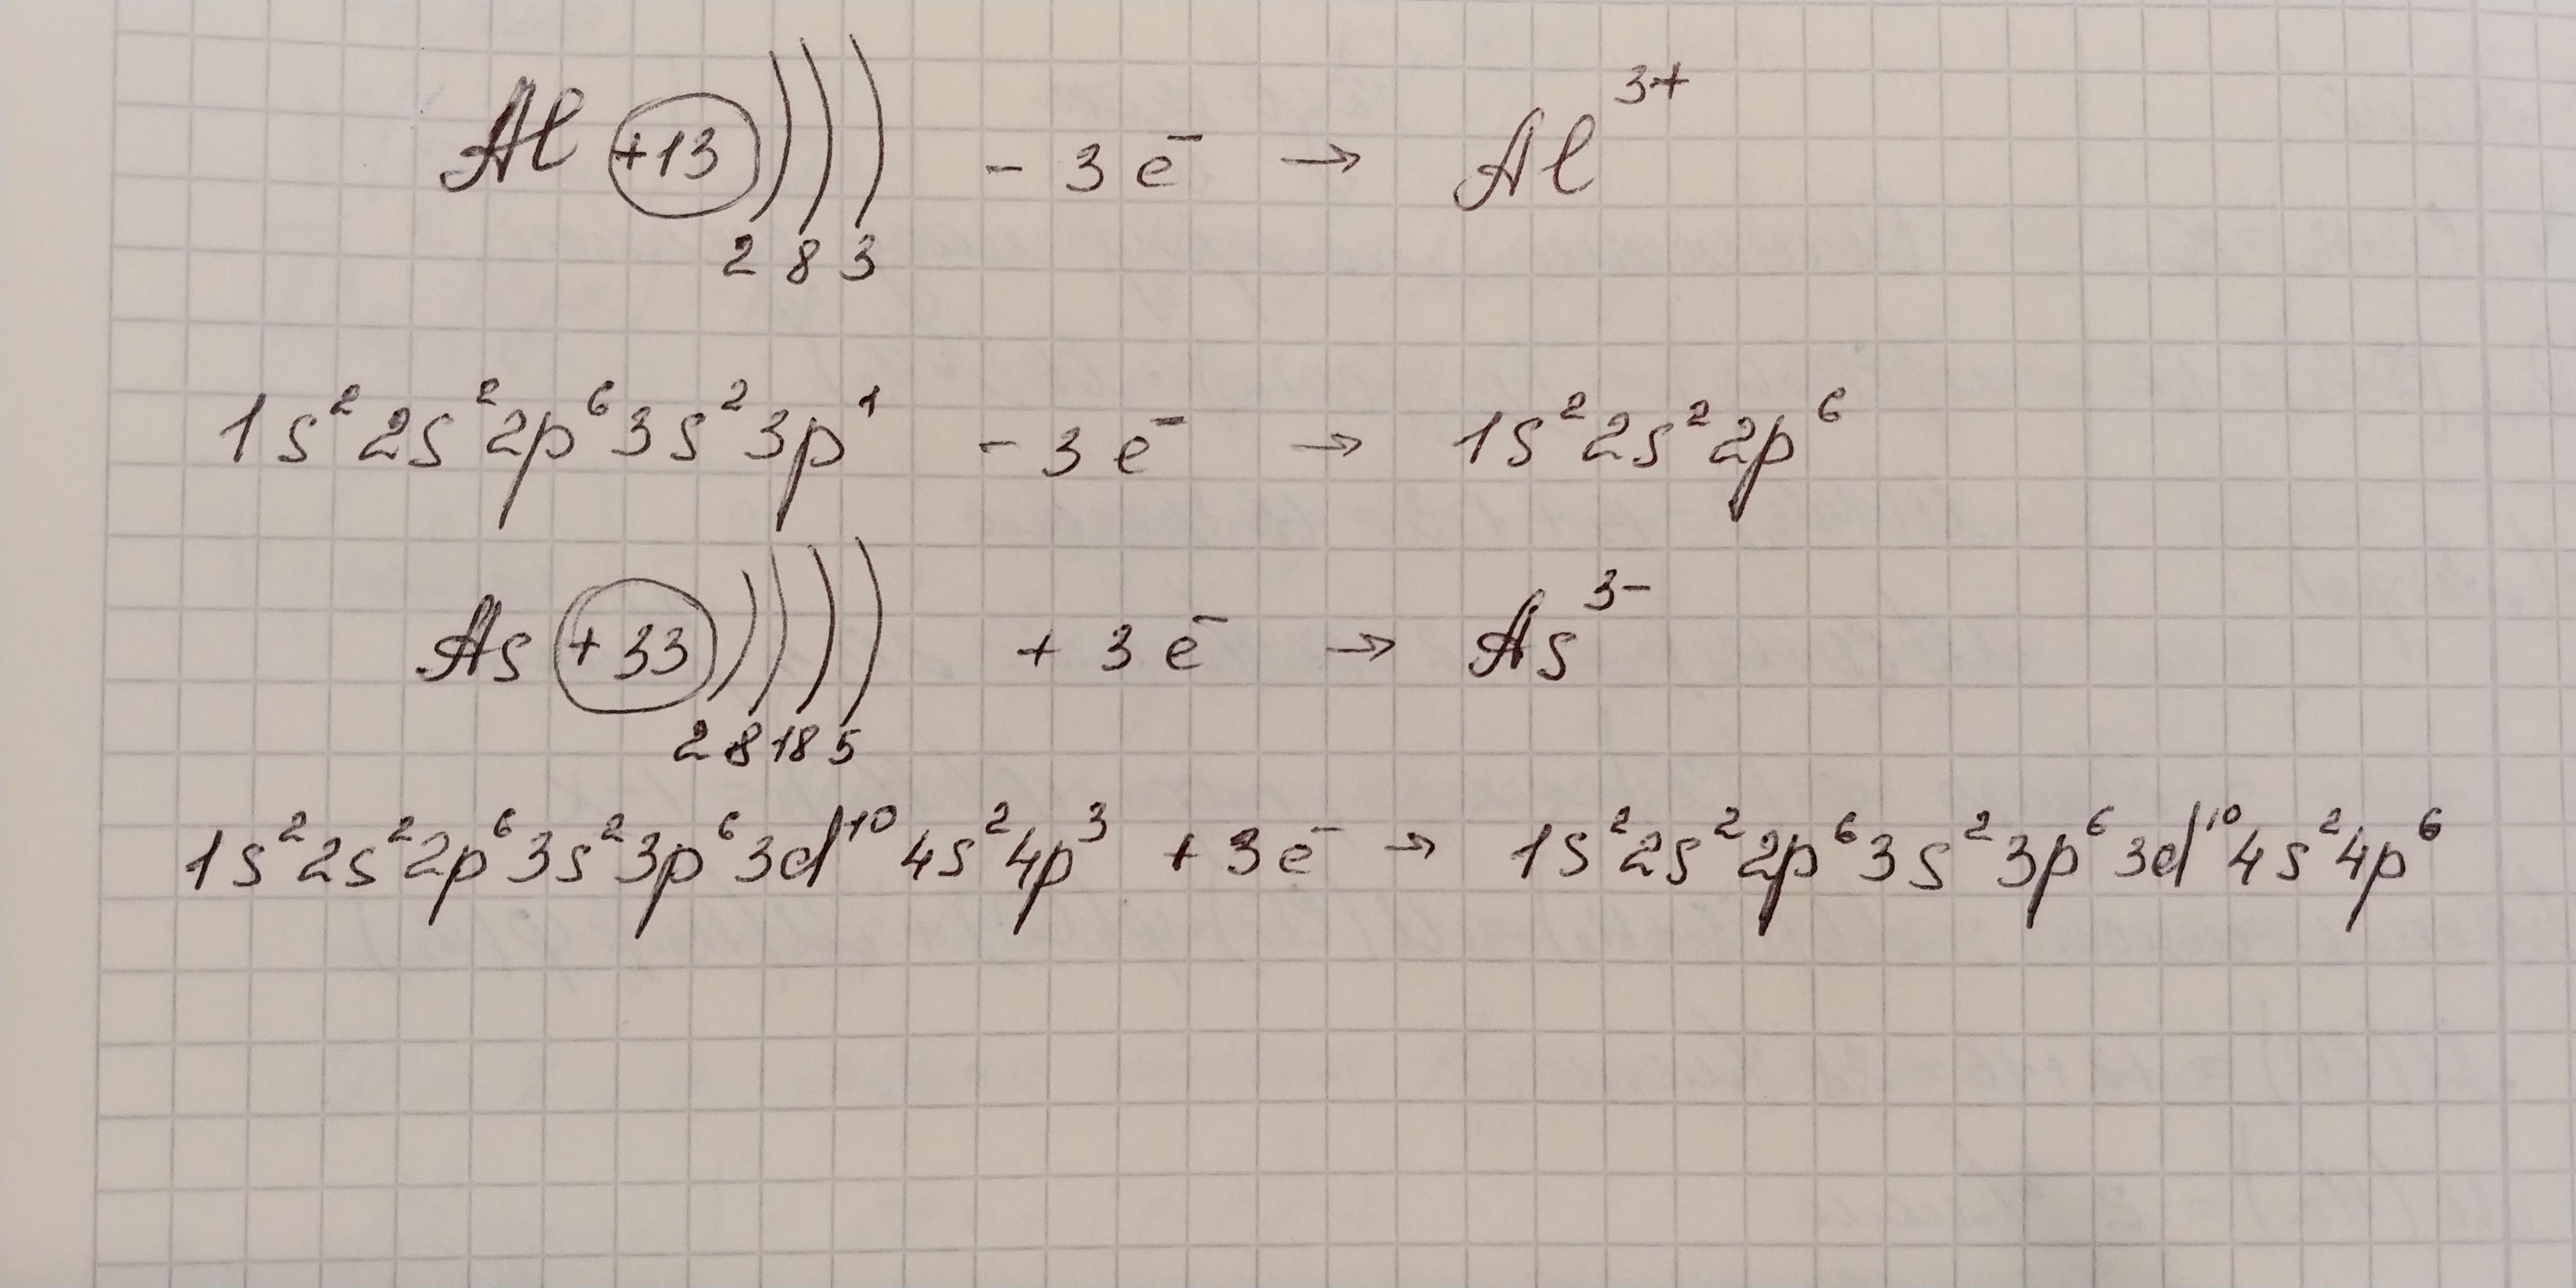 Al +13 ))) - 3e⁻ → Al³⁺
2 8 3
1s²2s²2p⁶3s²3p¹ - 3e⁻ → 1s²2s²2p⁶
As +33 )))) + 3e⁻ → As³⁻
2 8 18 5
1s²2s²2p⁶3s²3p⁶3d¹⁰4s²4p³ + 3e⁻ → 1s²2s²2p⁶3s²3p⁶3d¹⁰4s²4p⁶